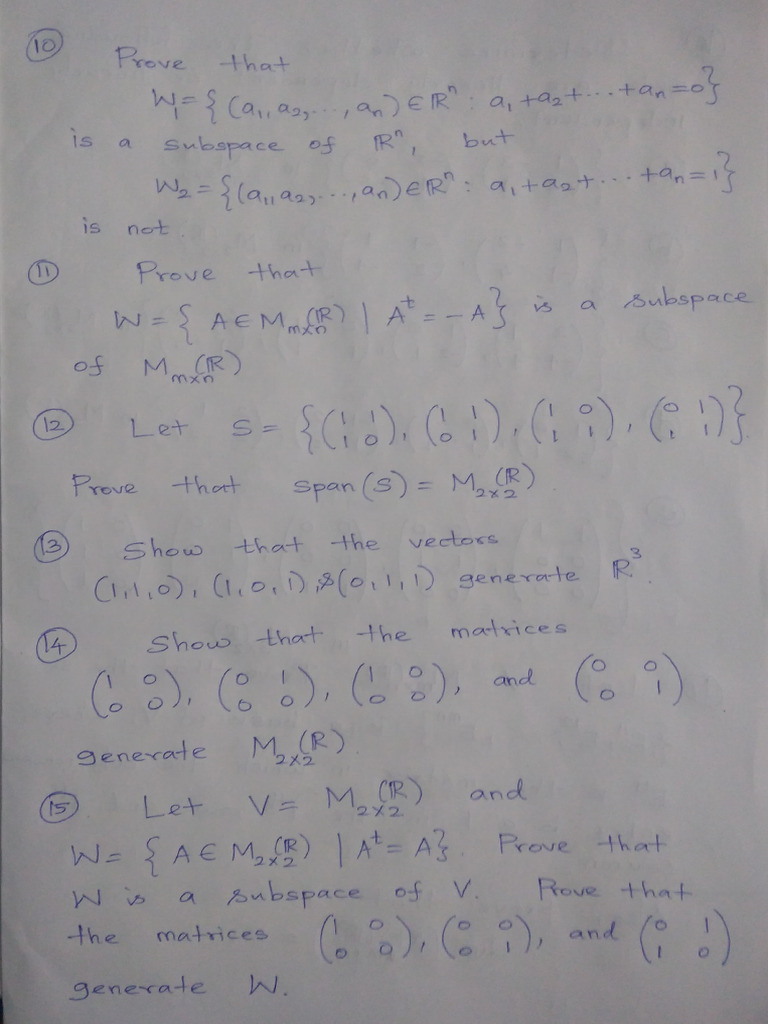 ⑩ Prove that
W₁ = { (a₁, a₂, ..., aₙ) ∈ ℝⁿ : a₁ + a₂ + ... + aₙ = 0 }
is a subspace of ℝⁿ, but
W₂ = { (a₁, a₂, ..., aₙ) ∈ ℝⁿ : a₁ + a₂ + ... + aₙ = 1 }
is not.
⑪ Prove that
W = { A ∈ M_{m×n}(ℝ) | Aᵗ = -A } is a subspace
of M_{m×n}(ℝ)
⑫ Let S = { (1 1; 1 0), (1 1; 0 1), (1 0; 1 1), (0 1; 1 1) }
Prove that span(S) = M_{2×2}(ℝ)
⑬ Show that the vectors
(1,1,0), (1,0,1), & (0,1,1) generate ℝ³.
⑭ Show that the matrices
(1 0; 0 0), (0 1; 0 0), (1 0; 0 0), and (0 0; 0 1)
generate M_{2×2}(ℝ).
⑮ Let V = M_{2×2}(ℝ) and
W = { A ∈ M_{2×2}(ℝ) | Aᵗ = A }. Prove that
W is a subspace of V. Prove that
the matrices (1 0; 0 0), (0 0; 0 1), and (0 1; 1 0)
generate W.